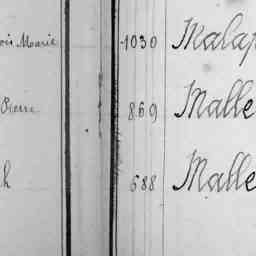 ois Marie 1030 Malap
Pierre 869 Malle
h 688 Malle